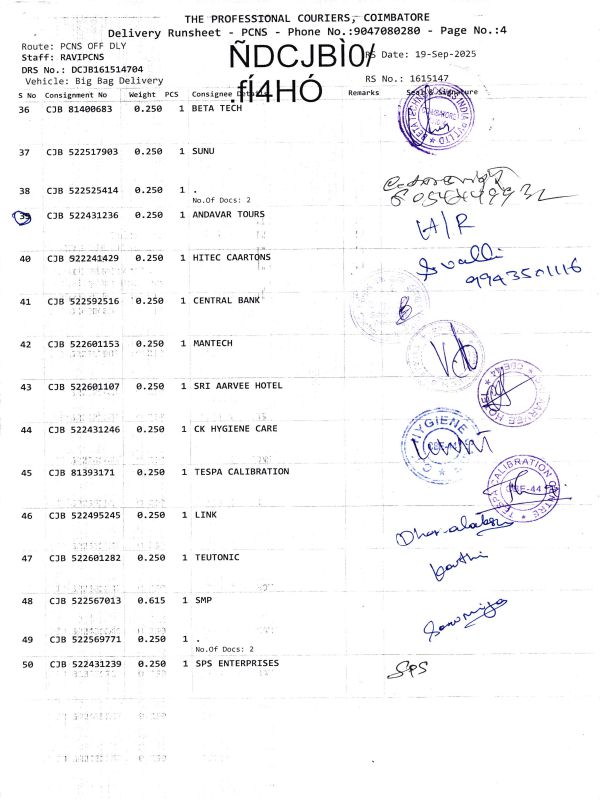 THE PROFESSIONAL COURIERS, COIMBATORE
Delivery Runsheet - PCNS - Phone No.:9047080280 - Page No.:4
Route: PCNS OFF DLY
Staff: RAVIPCNS
ÑDCJBÌ0/
Date: 19-Sep-2025
DRS No.: DCJB161514704
Vehicle: Big Bag Delivery
.fÍ4HÓ
RS No.: 1615147
S No Consignment No Weight PCS Consignee Details Remarks Seal & Signature
36 CJB 81400683 0.250 1 BETA TECH
37 CJB 522517903 0.250 1 SUNU
38 CJB 522525414 0.250 1 .
No.Of Docs: 2
39 CJB 522431236 0.250 1 ANDAVAR TOURS
H/R
40 CJB 922241429 0.250 1 HITEC CAARTONS
Svalli
9943501116
41 CJB 522592516 0.250 1 CENTRAL BANK
42 CJB 522601153 0.250 1 MANTECH
43 CJB 522601107 0.250 1 SRI AARVEE HOTEL
44 CJB 522431246 0.250 1 CK HYGIENE CARE
HYGIENE
45 CJB 81393171 0.250 1 TESPA CALIBRATION
TESPA CALIBRATION CENTRE
CBE-44
46 CJB 522495245 0.250 1 LINK
47 CJB 522601282 0.250 1 TEUTONIC
48 CJB 522567013 0.615 1 SMP
49 CJB 522569771 0.250 1 .
No.Of Docs: 2
50 CJB 522431239 0.250 1 SPS ENTERPRISES
SPS